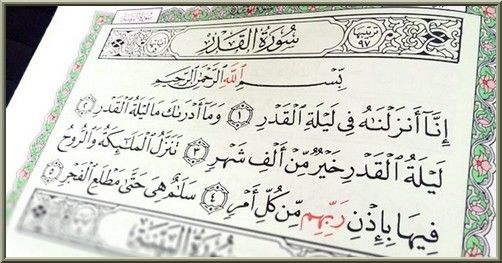 ترتيبها ٩٧ سُورَةُ القَدۡرِ
بِسۡمِ ٱللَّهِ ٱلرَّحۡمَٰنِ ٱلرَّحِيمِ
إِنَّآ أَنزَلۡنَٰهُ فِي لَيۡلَةِ ٱلۡقَدۡرِ ١ وَمَآ أَدۡرَىٰكَ مَا لَيۡلَةُ ٱلۡقَدۡرِ ٢
لَيۡلَةُ ٱلۡقَدۡرِ خَيۡرٞ مِّنۡ أَلۡفِ شَهۡرٖ ٣ تَنَزَّلُ ٱلۡمَلَٰٓئِكَةُ وَٱلرُّوحُ
فِيهَا بِإِذۡنِ رَبِّهِم مِّن كُلِّ أَمۡرٖ ٤ سَلَٰمٌ هِيَ حَتَّىٰ مَطۡلَعِ ٱلۡفَجۡرِ ٥
سُورَةُ البَيِّنَةِ